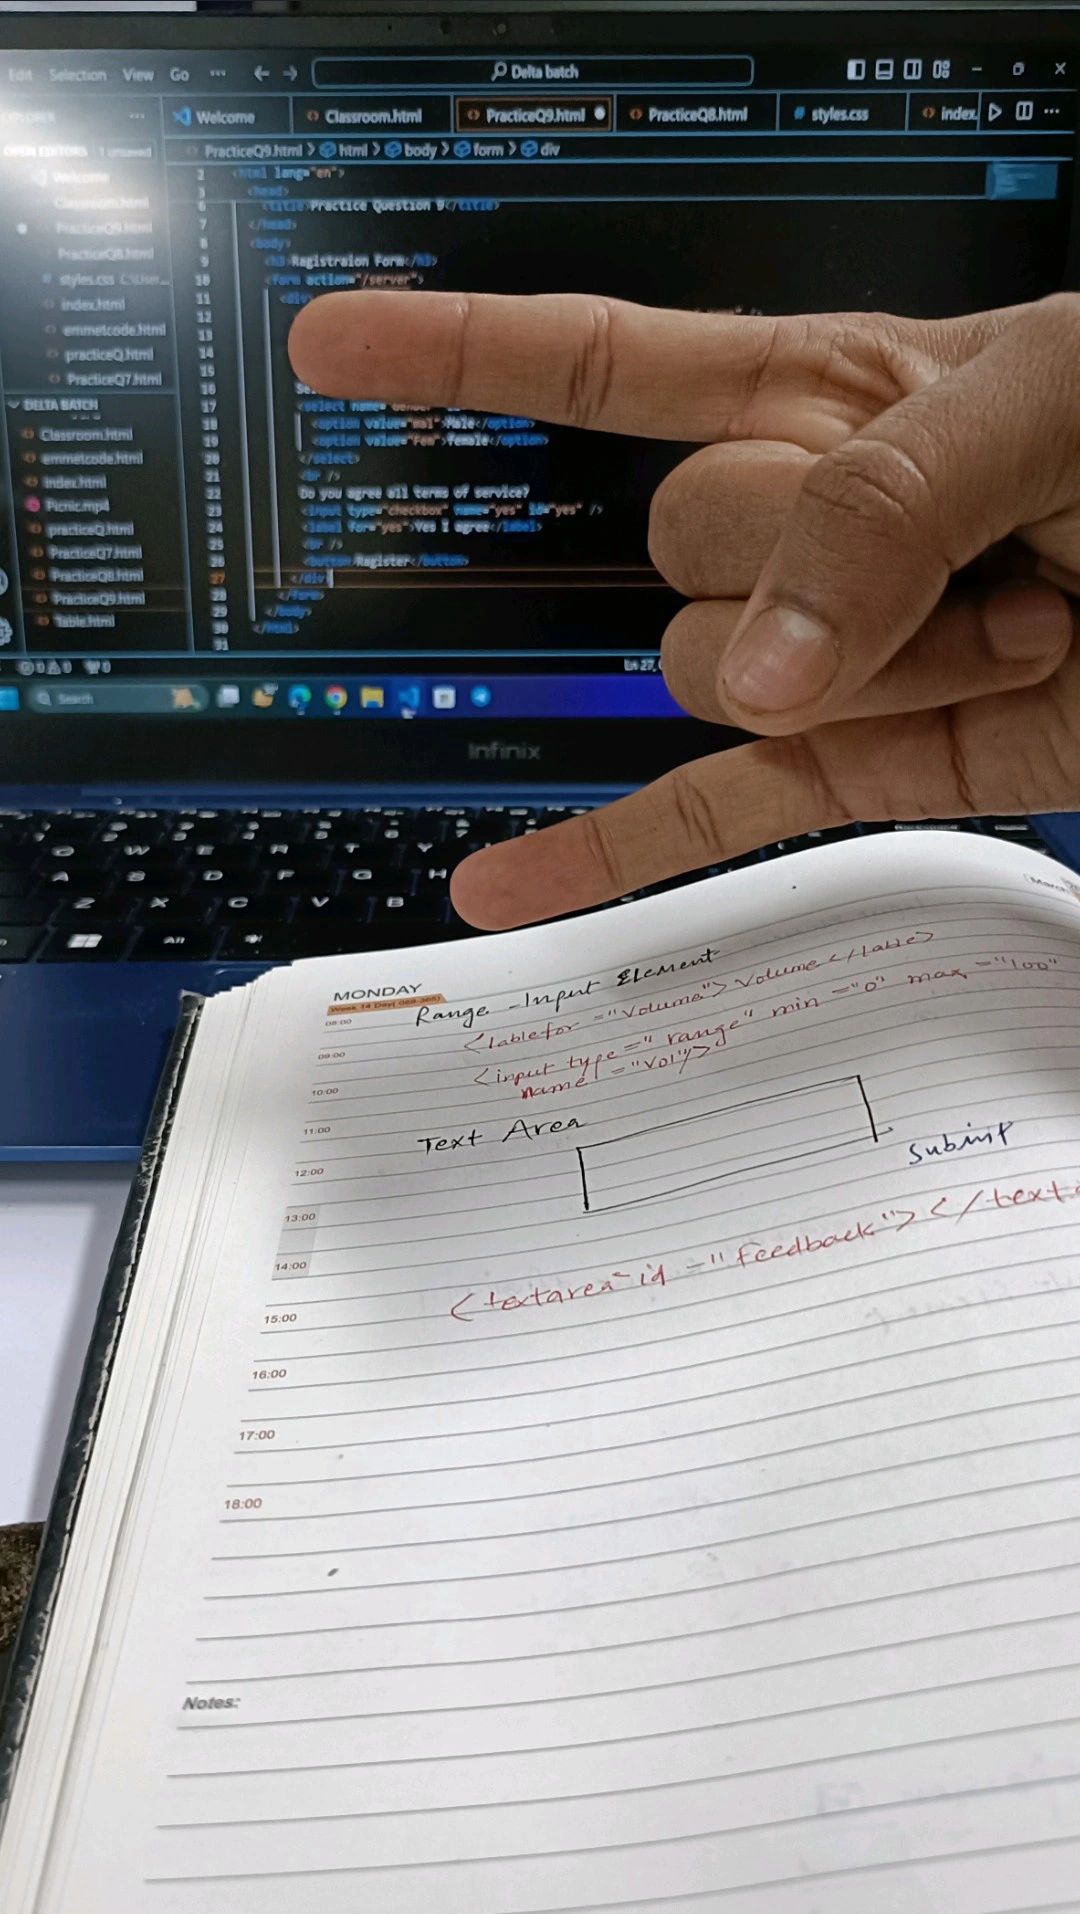 Edit Selection View Go ··· ← → Delta batch
Welcome Classroom.html PracticeQ9.html PracticeQ8.html styles.css index.
OPEN EDITORS 1 unsaved
Welcome
Classroom.html
PracticeQ9.html
PracticeQ8.html
styles.css C:\User...
index.html
emmetcode.html
practiceQ.html
PracticeQ7.html
DELTA BATCH
Classroom.html
emmetcode.html
index.html
Picnic.mp4
practiceQ.html
PracticeQ7.html
PracticeQ8.html
PracticeQ9.html
Table.html
PracticeQ9.html > html > body > form > div
2 <html lang="en">
3 <head>
6 <title>Practice Question 9</title>
7 </head>
8 <body>
9 <h3>Registraion Form</h3>
10 <form action="/server">
11 <div>
12
13
14
15
16
17 <select name=
18 <option value="mal">Male</option>
19 <option value="Fem">female</option>
20 </select>
21 <br />
22 Do you agree all terms of service?
23 <input type="checkbox" name="yes" id="yes" />
24 <label for="yes">Yes I agree</label>
25 <br />
26 <button>Register</button>
27 </div>
28 </form>
29 </body>
30 </html>
31
Ln 27,
Search
Infinix
Q W E R T Y
A S D F G H
Z X C V B
Alt
MONDAY
08:00
09:00
10:00
11:00
12:00
13:00
14:00
15:00
16:00
17:00
18:00
Range -Input Element
<lable for ="volume"> volume </lable>
<input type =" range" min ="0" max ="100"
name ="vol">
Text Area
Submit
<textarea id ="feedback"></text
Notes: